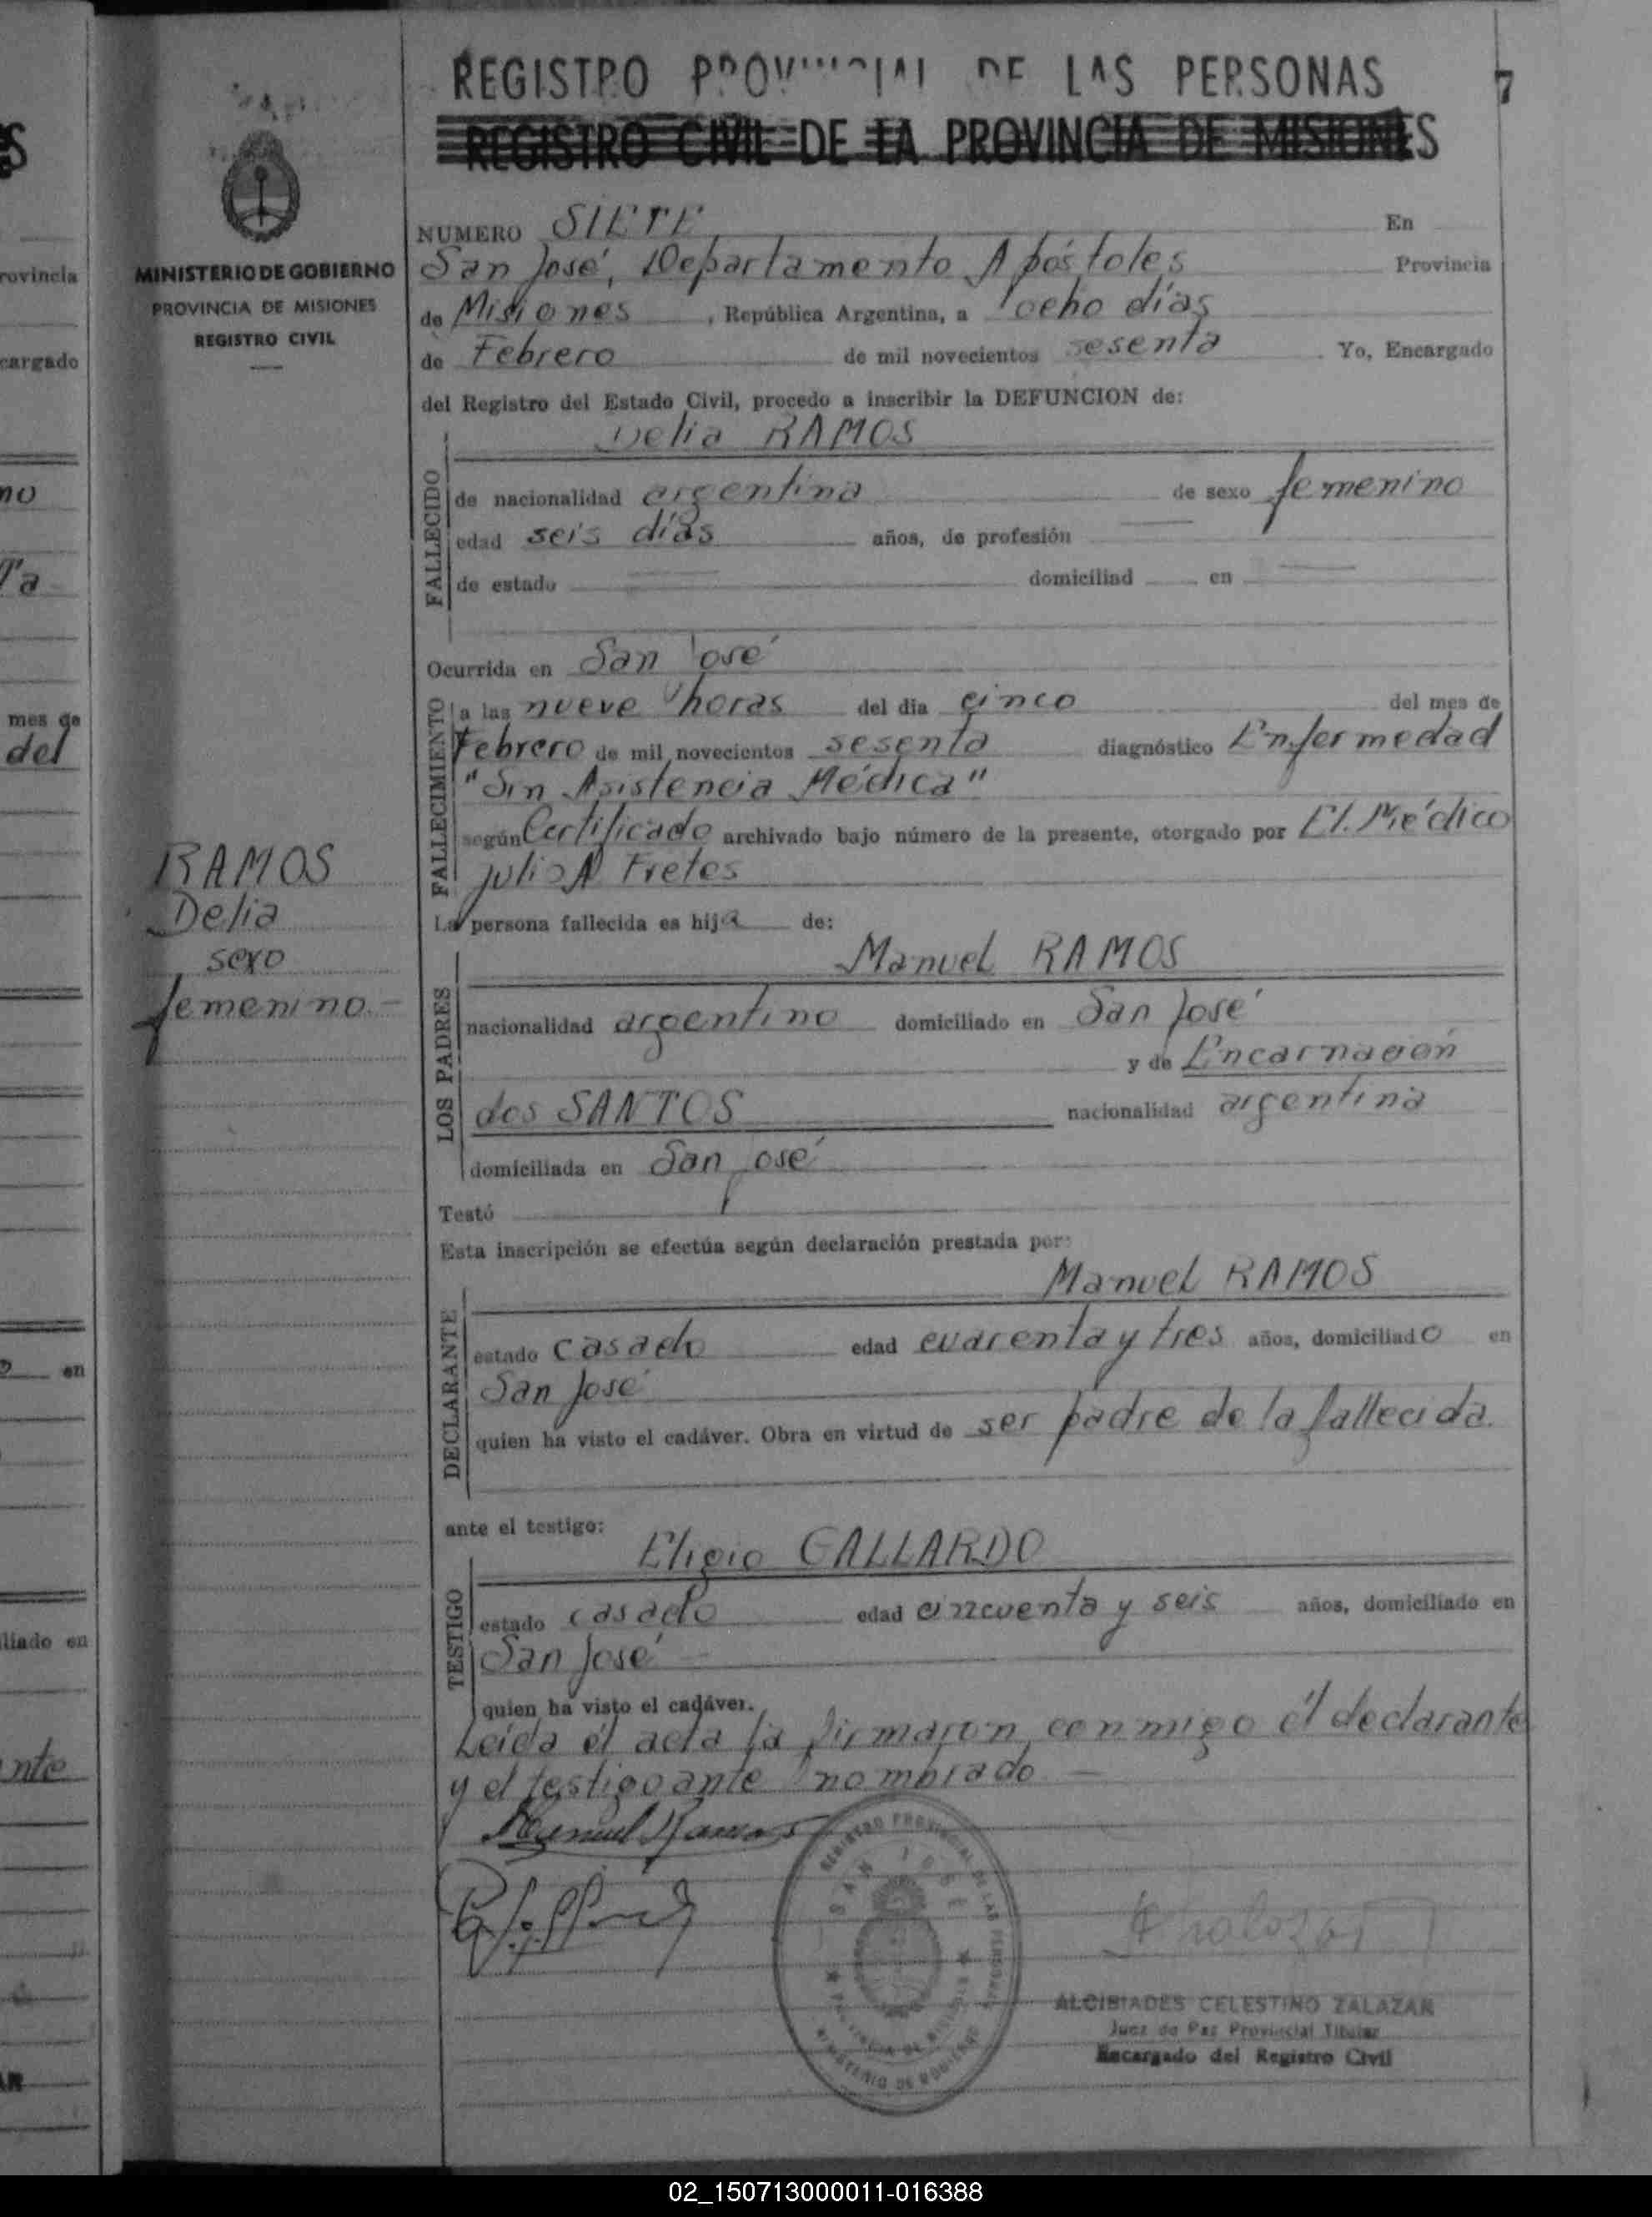 REGISTRO PROVINCIAL DE LAS PERSONAS
7
REGISTRO CIVIL DE LA PROVINCIA DE MISIONES
MINISTERIO DE GOBIERNO
PROVINCIA DE MISIONES
REGISTRO CIVIL
NUMERO SIETE En
San José, Departamento Apóstoles Provincia
de Misiones, República Argentina, a ocho días
de Febrero de mil novecientos sesenta Yo, Encargado
del Registro del Estado Civil, procedo a inscribir la DEFUNCION de:
Delia RAMOS
FALLECIDO
de nacionalidad argentina de sexo femenino
edad seis días años, de profesión
de estado domiciliad en
Ocurrida en San José
FALLECIMIENTO
a las nueve horas del dia cinco del mes de
Febrero de mil novecientos sesenta diagnóstico Enfermedad
"Sin Asistencia Médica"
según Certificado archivado bajo número de la presente, otorgado por El Médico
Julio A Fretes
RAMOS
Delia
sexo
femenino.-
La persona fallecida es hija de:
Manuel RAMOS
LOS PADRES
nacionalidad argentino domiciliado en San José
y de Encarnación
dos SANTOS nacionalidad argentina
domiciliada en San José
Testó
Esta inscripción se efectúa según declaración prestada por:
Manuel RAMOS
DECLARANTE
estado casado edad cuarenta y tres años, domiciliado en
San José
quien ha visto el cadáver. Obra en virtud de ser padre de la fallecida.
ante el testigo:
Eligio GALLARDO
TESTIGO
estado casado edad cincuenta y seis años, domiciliado en
San José
quien ha visto el cadáver.
Leída el acta la firmaron conmigo el declarante
y el testigo ante nombrado -
Manuel Ramos
REGISTRO PROVINCIAL DE LAS PERSONAS
SAN JOSE
PROVINCIA DE MISIONES
MINISTERIO DE GOBIERNO
ALCIBIADES CELESTINO ZALAZAR
Juez de Paz Provincial Titular
Encargado del Registro Civil
rovincia
cargado
no
Ta
mes de
del
en
liado en
nte
02_150713000011-016388